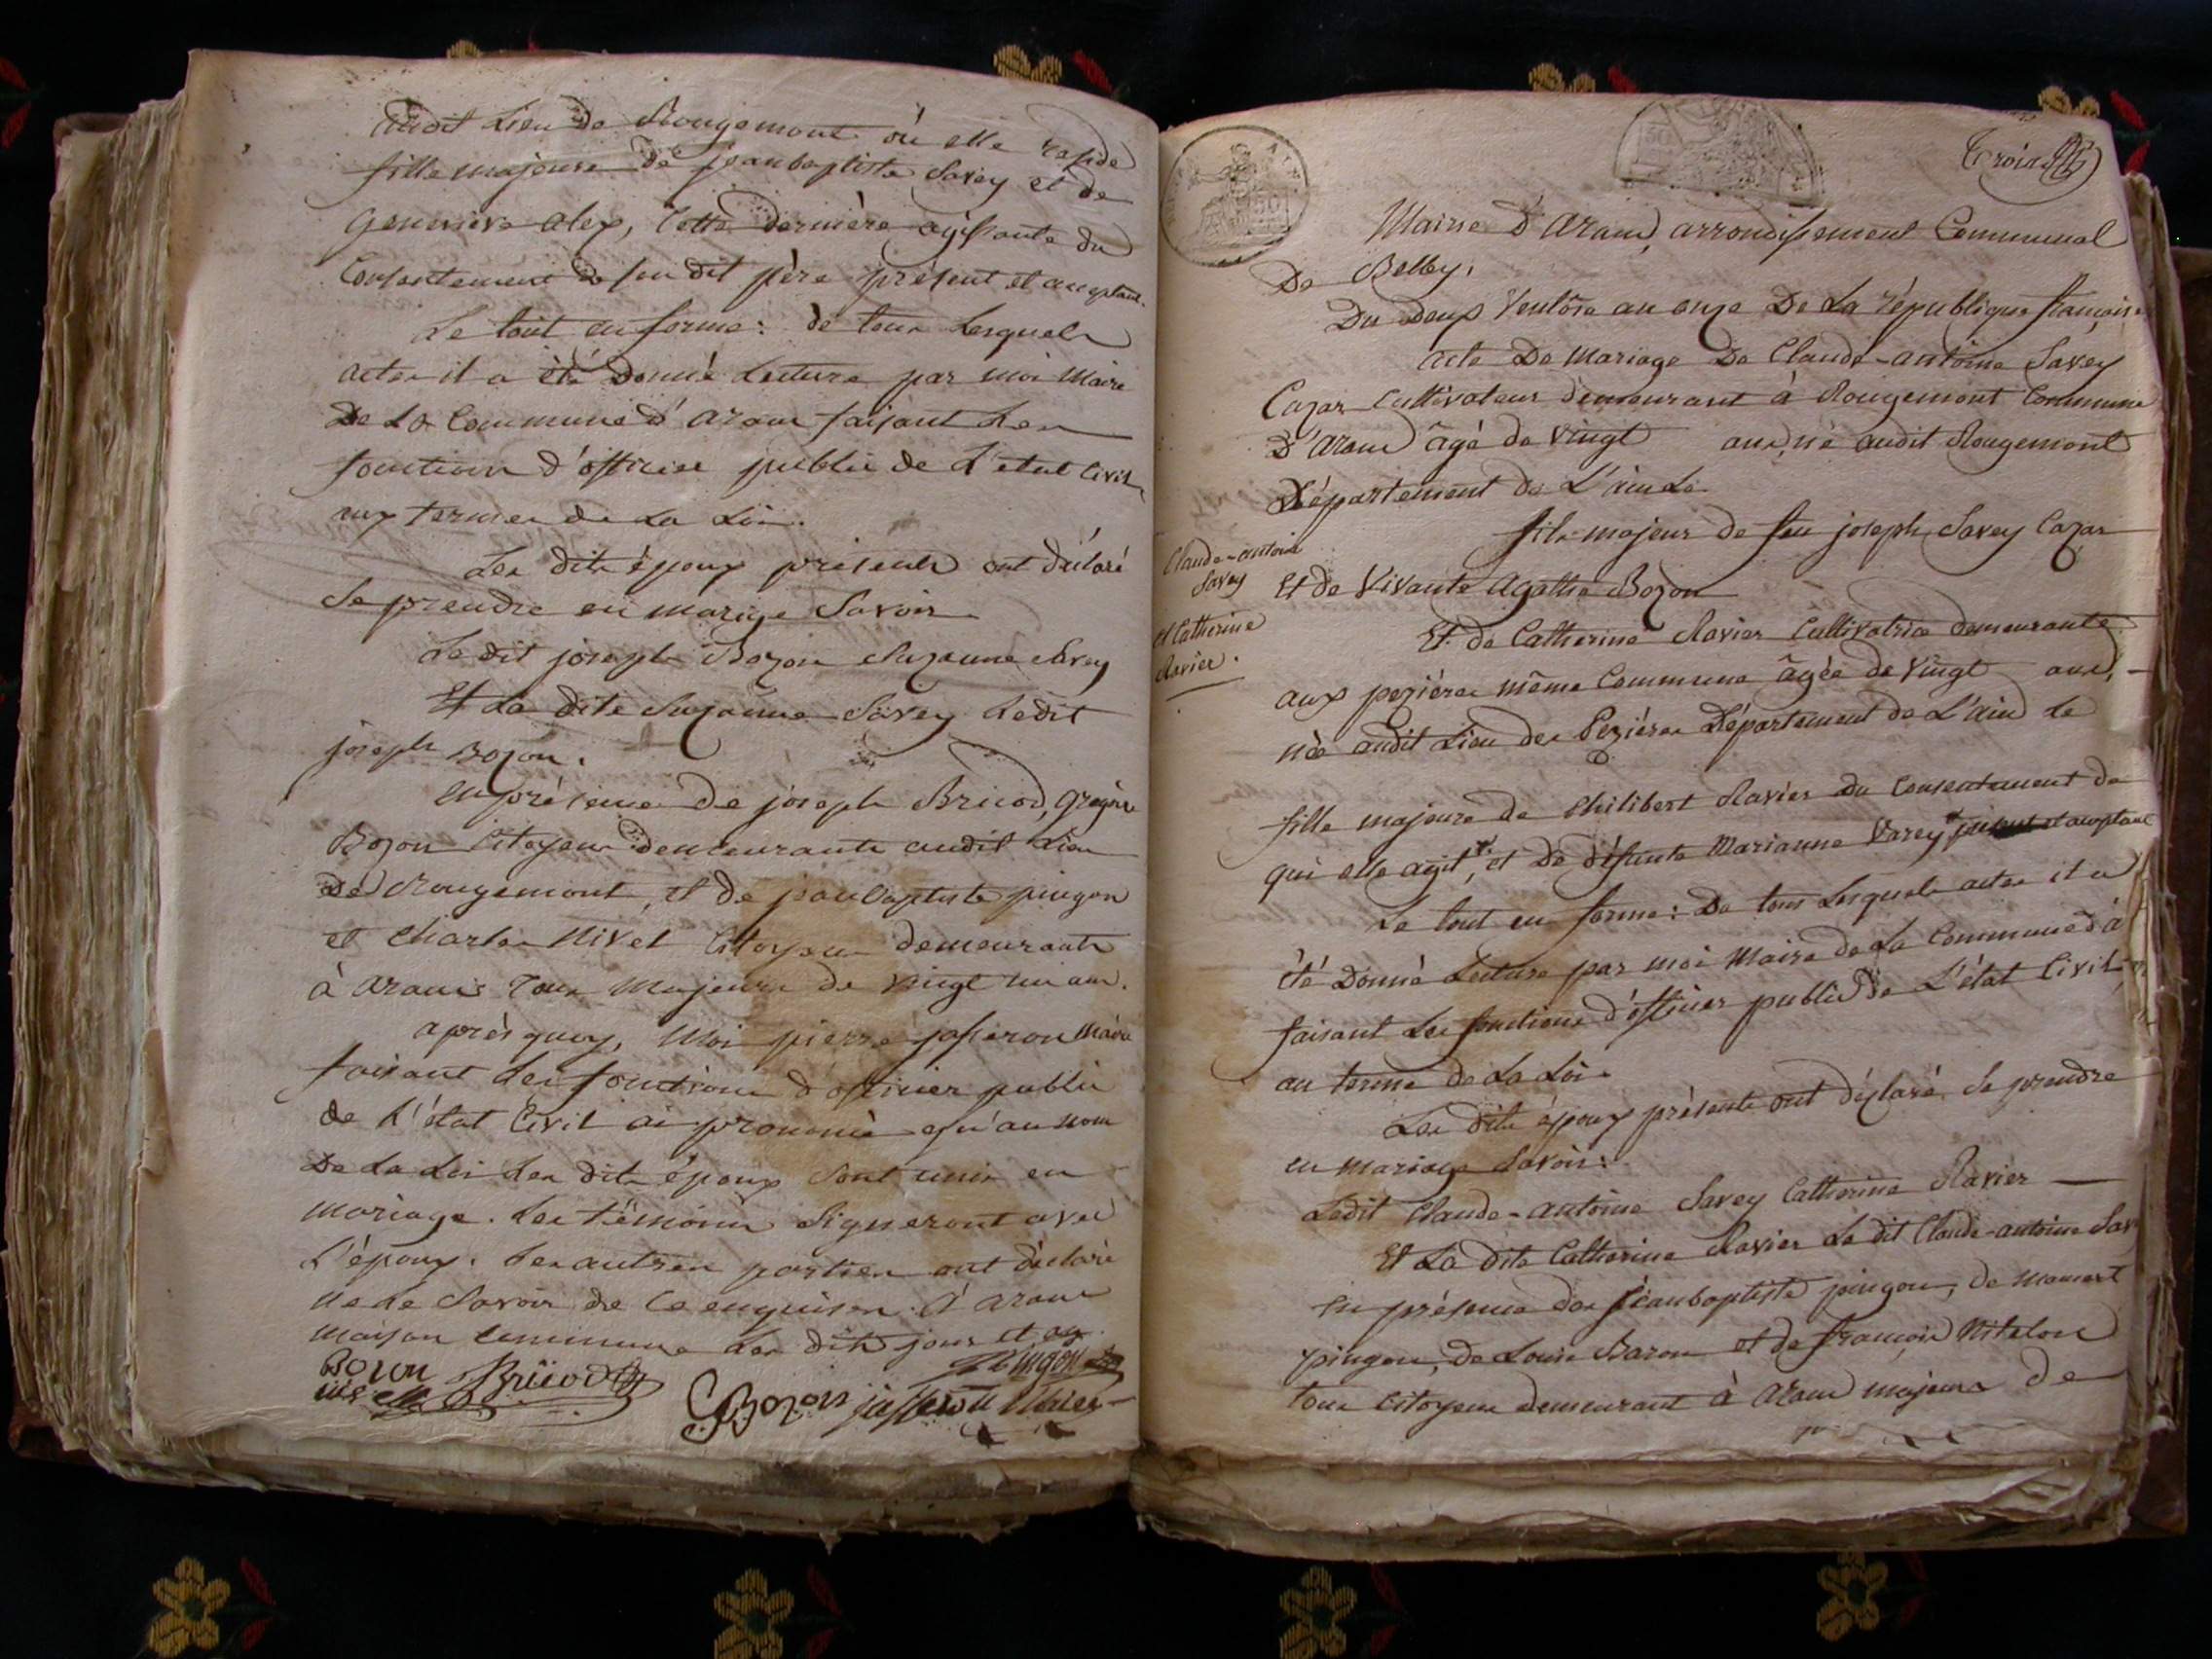 audit Lieu de Rougemont où elle reside
fille majeure de jeanbaptiste Savey et de
genevieve aley, Cette dernière agissante du
Consentement de son dit père présent et acceptant.
Le tout en forme: de tous Lesquels
actes il a été Donné Lecture par moi Maire
De La Commune d'aranc faisant Les
fonctions d'officier public de L'etat Civil,
aux termes de La Loi.
Les dits époux présents ont déclaré
Se prendre en mariage Savoir
Le dit joseph Bozon Suzanne Savey
Et La dite Suzanne Savey Ledit
joseph Bozon.
en présence de joseph Bricod, grégoire
Bozon Citoyens demeurants audit Lieu
de Rougemont, et de jeanbaptiste pingon
et Charles Nivet Citoyens demeurants
à aranc Tous Majeurs de vingt un ans.
après quoy, Moi pierre josseron Maire
faisant Les fonctions d'officier public
de L'état Civil ai prononcé qu'au nom
De La Loi Les dits époux Sont unis en
mariage. Les témoins Signeront avec
L'époux. Les autres parties ont déclaré
ne Le Savoir de ce enquises. à aranc
maison commune Les dits jour et an
Bozon Bricod pingon
Bozon josseron Maire
Trois
Mairie d'aranc, arrondissement Communal
De Belley,
Du deux Ventôse an onze De La république française
acte De Mariage De Claude-antoine Savey
Cazar Cultivateur demeurant à Rougemont Commune
D'aranc âgé de vingt ans, né audit Rougemont
Département de L'ain Le
fils majeur de feu joseph Savey Cazar
Et de Vivante Agathe Bozon
Claude-antoine
Savey
et Catherine
Ravier.
Et de Catherine Ravier Cultivatrice demeurante
aux pezières même Commune âgée de vingt ans,
née audit Lieu des Pezières Département de L'ain Le
fille majeure de philibert Ravier du Consentement de
qui elle agit, et De défunte Marianne Varey présent et acceptant
Le tout en forme: De tous Lesquels actes il a
été Donné Lecture par moi Maire de La Commune d'a
faisant Les fonctions d'officier public de L'état Civil,
au terme de La Loi.
Les dits époux présents ont déclaré Se prendre
en mariage Savoir:
Ledit Claude-antoine Savey Catherine Ravier
Et La dite Catherine Ravier Le dit Claude-antoine Sav
En présence de jeanbaptiste pingon, de Mamert
pingon, de Louis Baron et de françois Vitalon
tous Citoyens demeurant à aranc majeurs de